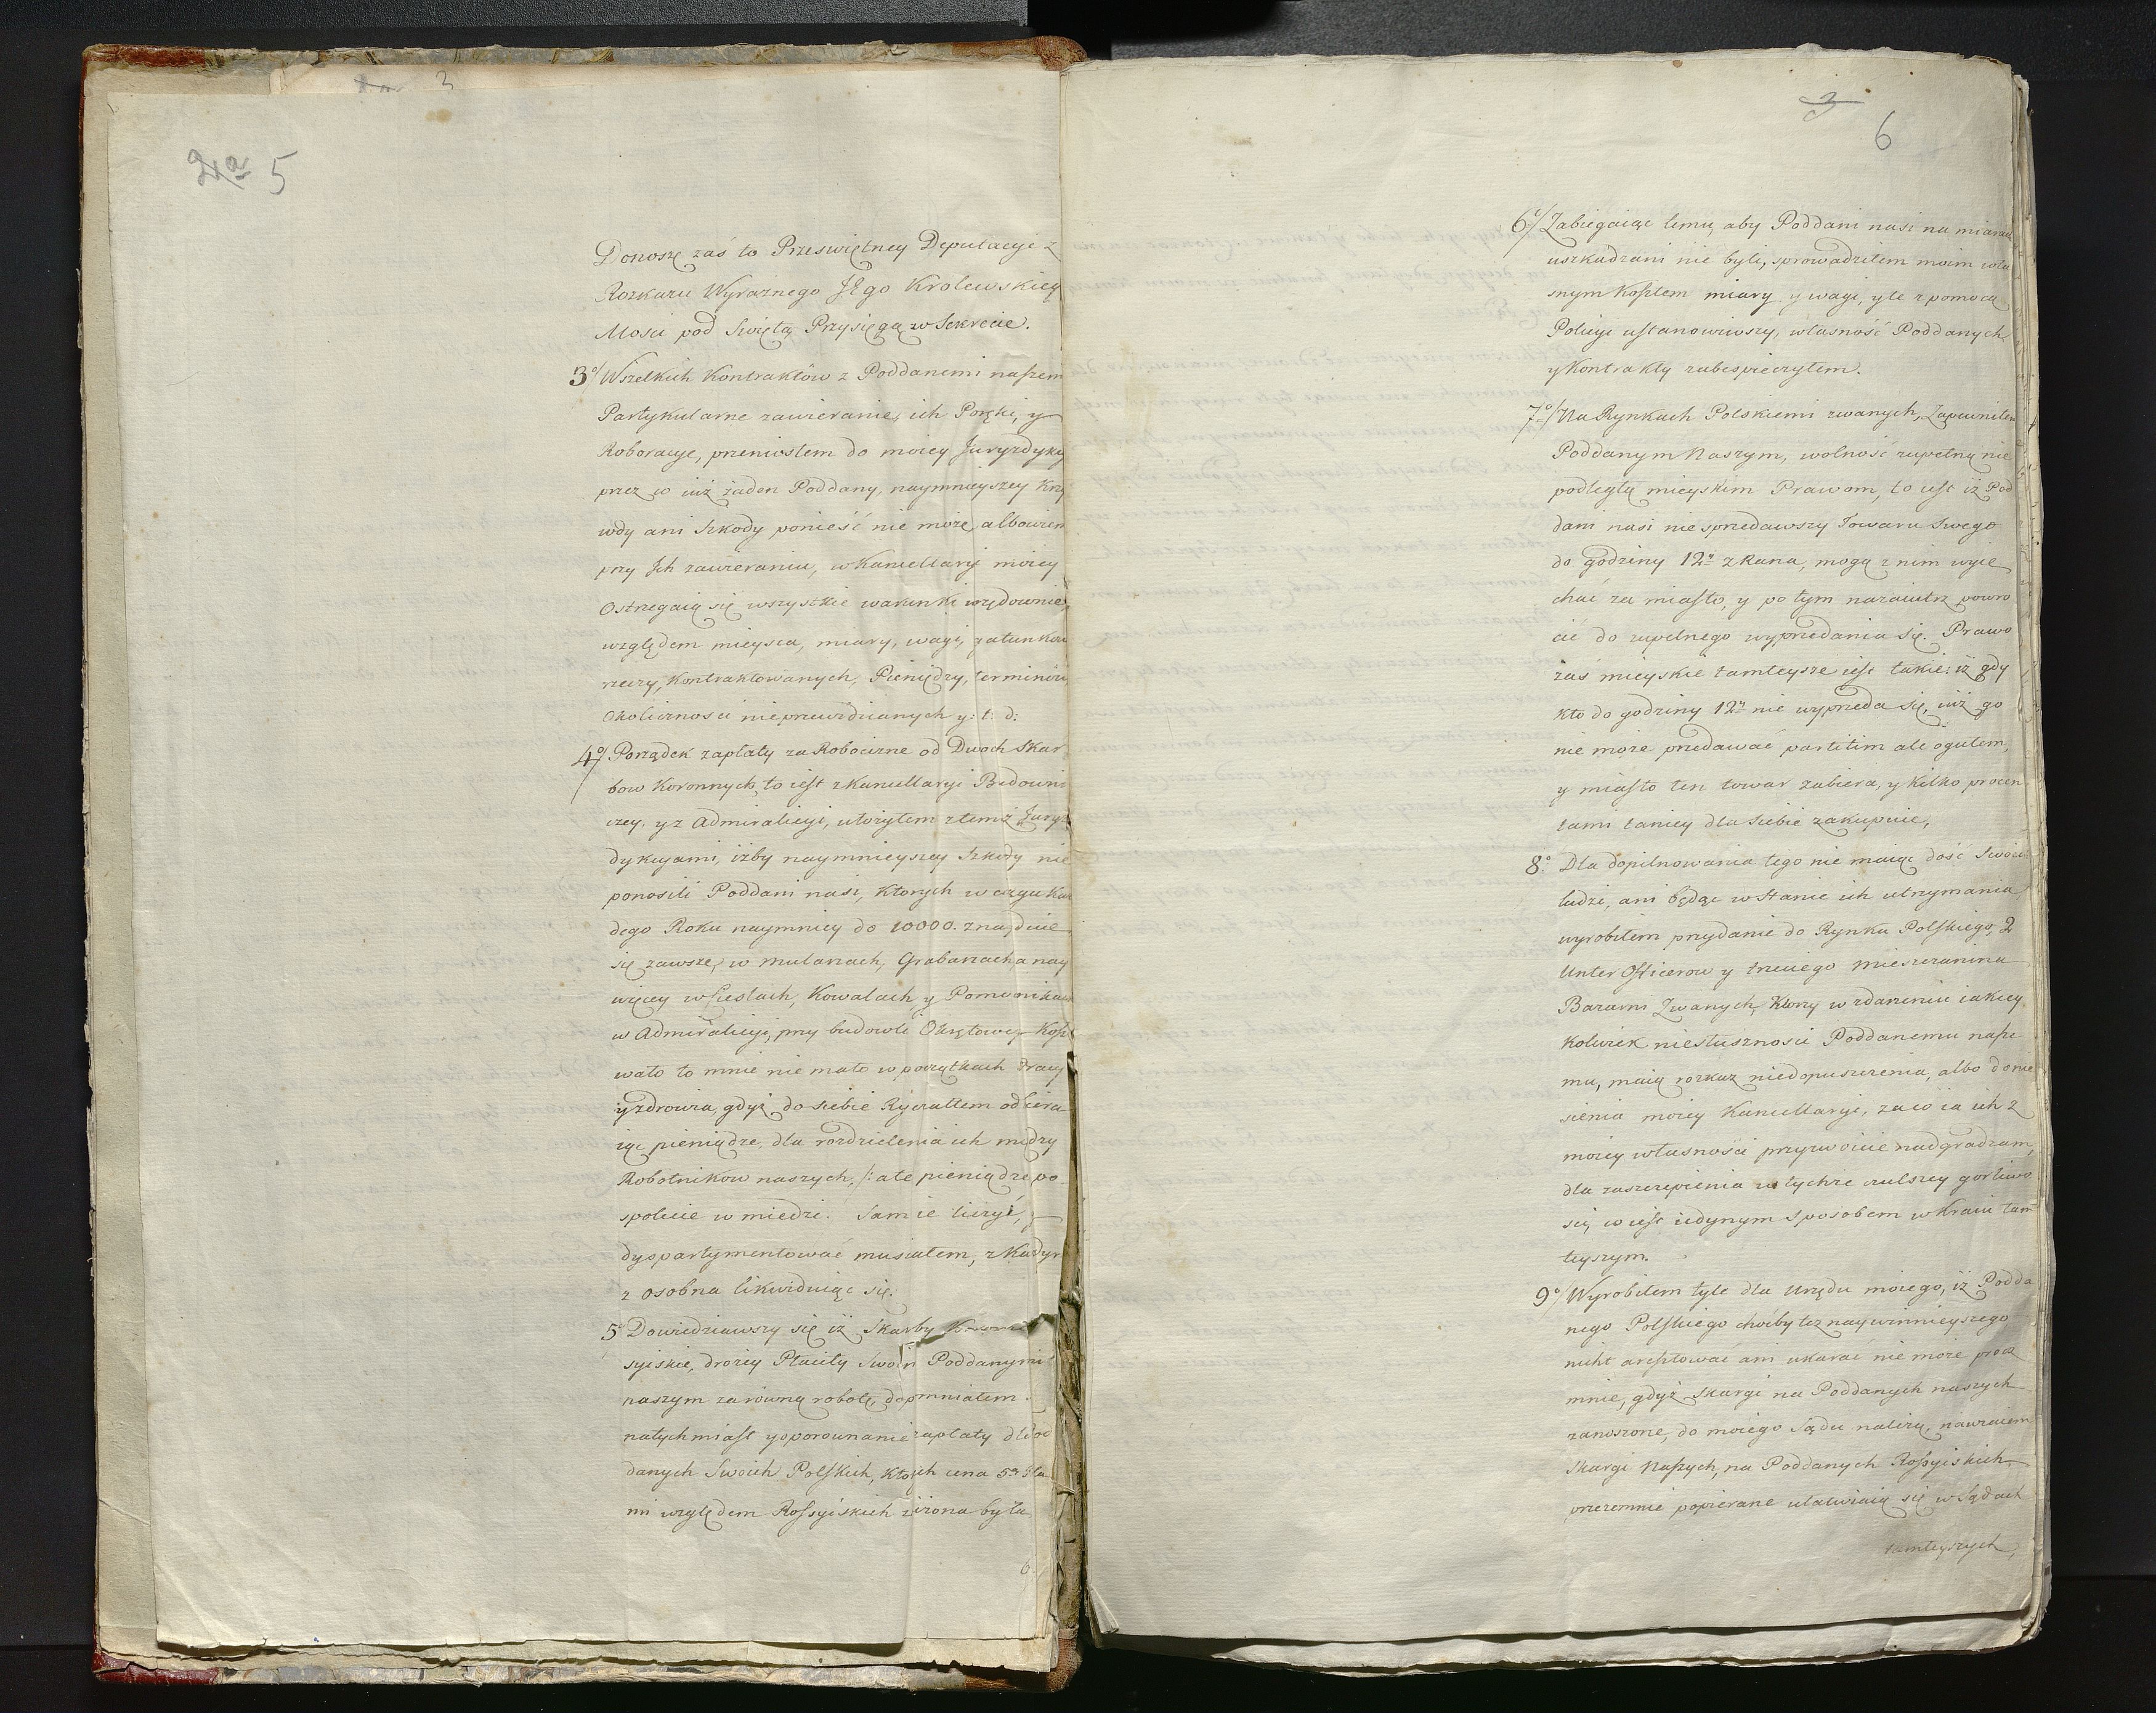 2a 5
Donoszę zaś to Przeświętney Deputacyi z
Rozkazu Wyraznego JEgo Krolewskiey
Mosci pod Swiętą Przysięgą w Sekrecie.
3o/ Wszelkich Kontraktów z Poddanemi naszem
Partykularne zawieranie, ich Poręki, y
Roboracye, przeniosłem do moiey Juryzdyky
przez co iuż żaden Poddany, naymnieyszey Krzy
wdy ani Szkody ponieść nie może, albowiem
przy Ich zawieraniu, w Kancellaryi moiey
Ostrzegaią się wszystkie warunki urzędownie
względem mieysca, miary, wagi, gatunków
rzeczy, Kontraktowanych, Pieniędzy, terminów
Okolicznosci nieprzewidzianych y: t: d:
4o/ Porządek zapłaty za Robociznę od Dwoch Skar
bow Koronnych, to iest z Kancellaryi Budowni
czey. y z Admiralicyi, ułożyłem z temiż Juryz
dykcyami, iżby naymnieyszey Szkody nie
ponosili Poddani nasi, Ktorych w ciągu Każ
dego Roku naymniey do 10000. znayduie
się zawsze, w Mularzach, Grabarzach a nay
więcey w Cieslach, Kowalach, y Pomocnikach
w Admiralicyi, przy budowli Okrętowey. Koszt
wało to mnie nie mało w początkach Pracy
y zdrowia, gdyż do siebie Ryczałtem odbiera
iąc pieniądze, dla rozdzielenia ich między
Robotnikow naszych, /: ale pieniądze po
spolicie w miedzi. Sam ie liczyć, y
dyspartymentować musiałem, z Każdym
z osobna likwiduiąc się.
5o Dowiedziawszy się iż Skarby
syiskie, drożey Płaciły Swoim Poddanym
naszym za równą robotę, dopomniałem
natychmiast y oporownanie zapłaty dla Pod
danych Swoich Polskich, Ktorych cena 5cią
mi względem Rossyiskich niżona była
6
3
6
6o/ Zabiegaiąc temu, aby Poddani nasi na miarach
uszkadzani nie byli, sprowadziłem moim wła
snym Kosztem miary y wagi, y te z pomocą
Policyi ustanowiwszy, własność Poddanych
y Kontrakty zabespieczyłem.
7o/ Na Rynkach Polskiemi zwanych, Zapewniłem
Poddanym Naszym, wolność zupełną nie
podległą mieyskim Prawom, to iest iż Pod
dani nasi nie sprzedawszy Towaru Swego
do godziny 12ey z Rana, mogą z nim wyie
chać za miasto, y po tym nazaiutrz powro
cić do zupełnego wyprzedania się. Prawo
zaś mieyskie tamteysze iest takie: iż gdy
kto do godziny 12ey nie wyprzeda się, iuż go
nie może przedawać partitim ale ogułem,
y miasto ten towar zabiera, y kilko procen
tami taniey dla siebie zakupuie,
8o. Dla dopilnowania tego nie maiąc dość Swoich
ludzi, ani będąc w Stanie ich utrzymania,
wyrobiłem przydanie do Rynku Polskiego, 2
Unter Officerow y trzeciego Mieszczanina
Bazarni Zwanych, Ktorzy w zdarzeniu iakiey
kolwiek niesłusznosci Poddanemu nasze
mu, maią rozkaz niedopuszczenia, albo donie
sienia moiey Kancellaryi, za co ia ich z
moiey własnosci przyzwoicie nadgradzam,
dla zaszczepienia w tychże czulszey gorliwo
sci, co iest iedynym sposobem w Kraiu tam
teyszym.
9o/ Wyrobiłem tyle dla Urzędu moiego, iż Podda
nego Polskiego choćby też naywinnieyszego
nikt aresztować ani ukarać nie może procz
mnie, gdyż skargi na Poddanych naszych
zanoszone, do moiego Sądu należą, nawzaiem
Skargi Naszych, na Poddanych Rossyiskich,
przezemnie popierane ułatwiaią się w Sądach
tamteyszych,